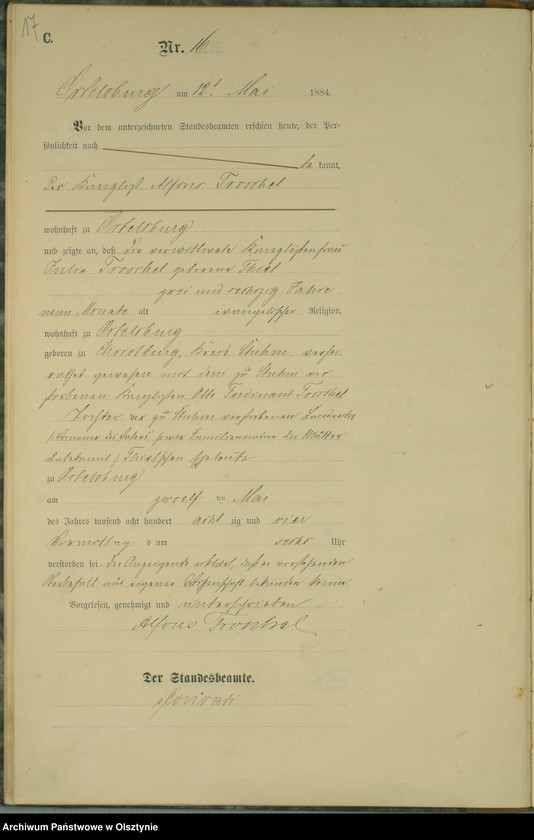 17
C.
Nr. 16
Ortelsburg am 12t Mai 1884.
Vor dem unterzeichneten Standesbeamten erschien heute, der Per-
sönlichkeit nach
be kannt,
der Kanzlist Alfons Trooschel
wohnhaft zu Ortelsburg
und zeigte an, daß die verwittwete Kanzlistenfrau
Julie Trooschel geborene Thiel
zwei und sechszig Jahre
neun Monate alt evangelischer Religion,
wohnhaft zu Ortelsburg
geboren zu Christburg, Kreis Stuhm, verhei-
rathet gewesen mit dem zu Stuhm ver-
storbenen Kanzlisten Otto Ferdinand Trooschel
Tochter der zu Stuhm verstorbenen
/ Vorname des Vaters, sowie Familienname der Mutter
unbekannt / Thielschen Eheleute
zu Ortelsburg
am zwoelf ten Mai
des Jahres tausend acht hundert acht zig und vier
Vormittag s um sechs Uhr
verstorben sei. Der Anzeigende erklärt, daß er vorstehenden
Sterbefall aus eigener Wissenschaft bekunden könne
Vorgelesen, genehmigt und unterschrieben
Alfons Trooschel
Der Standesbeamte.
Archiwum Państwowe w Olsztynie